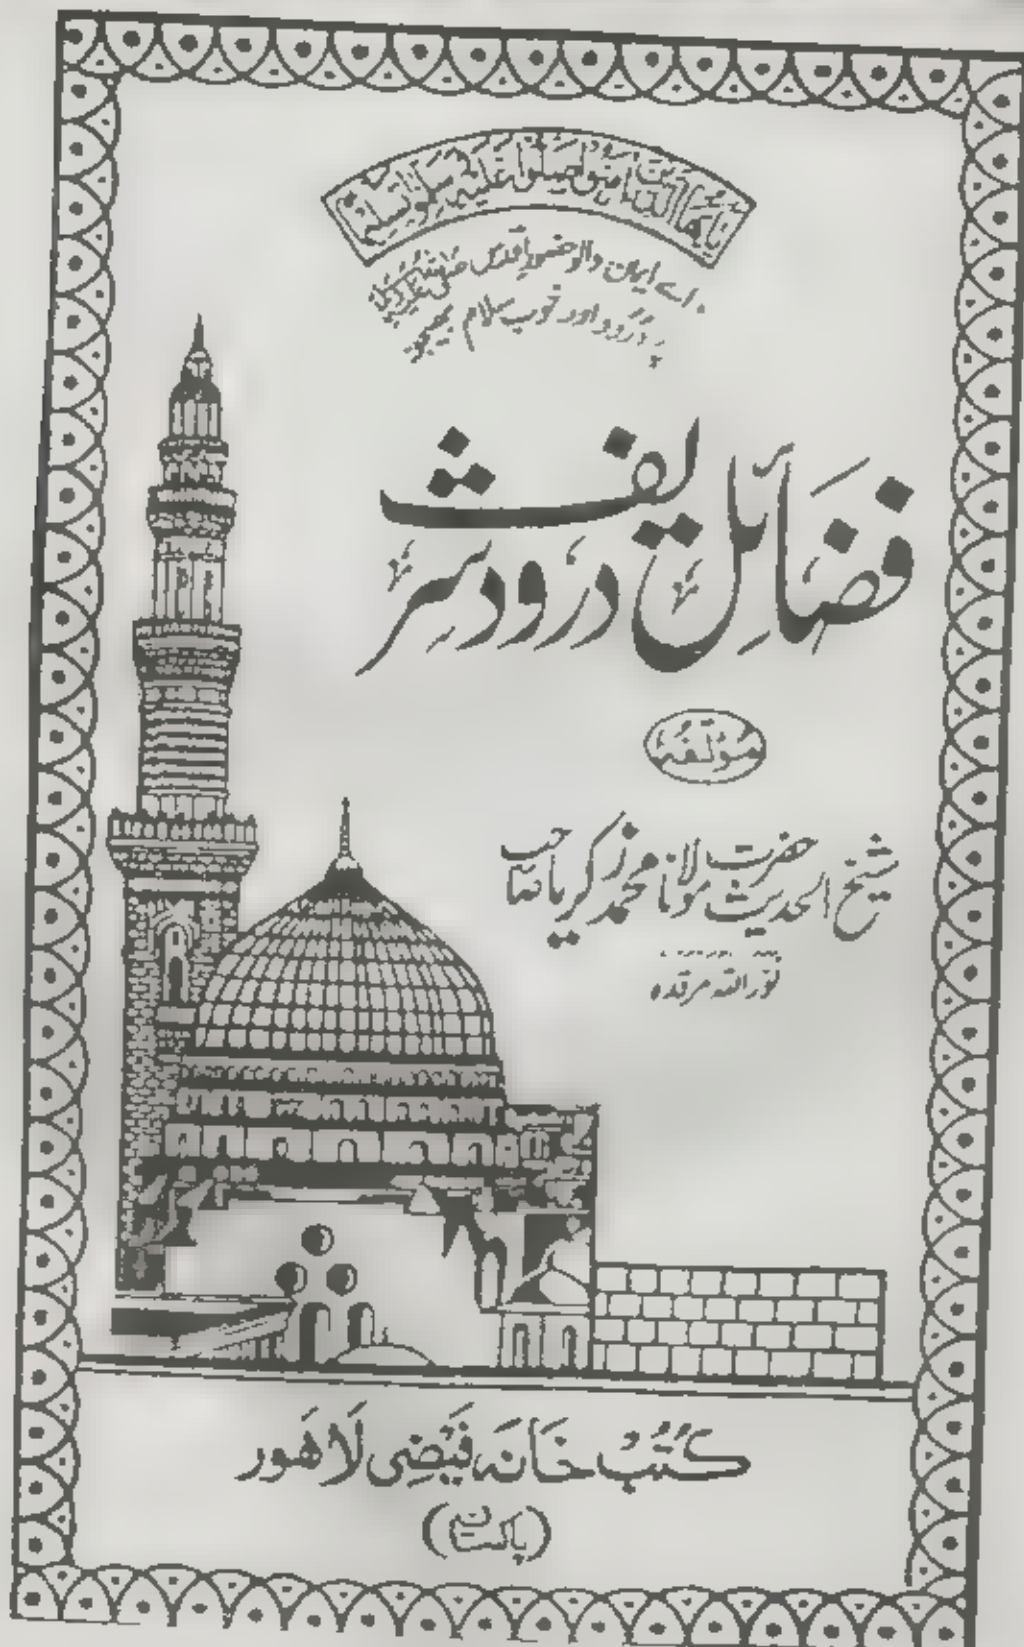 يَا أَيُّهَا الَّذِينَ آمَنُوا صَلُّوا عَلَيْهِ وَسَلِّمُوا تَسْلِيمًا
اے ایمان والو حضورِ اقدس صلی اللہ علیہ وسلم
پر دُرُود اور خوب سلام بھیجو
فضائل درود شریف
مؤلفہ
شیخ الحدیث حضرت مولانا محمد زکریا صاحب
نور اللہ مرقدہ
کُتُبْ خَانَہ فَیْضِی لَاهَور
(پاکستان)